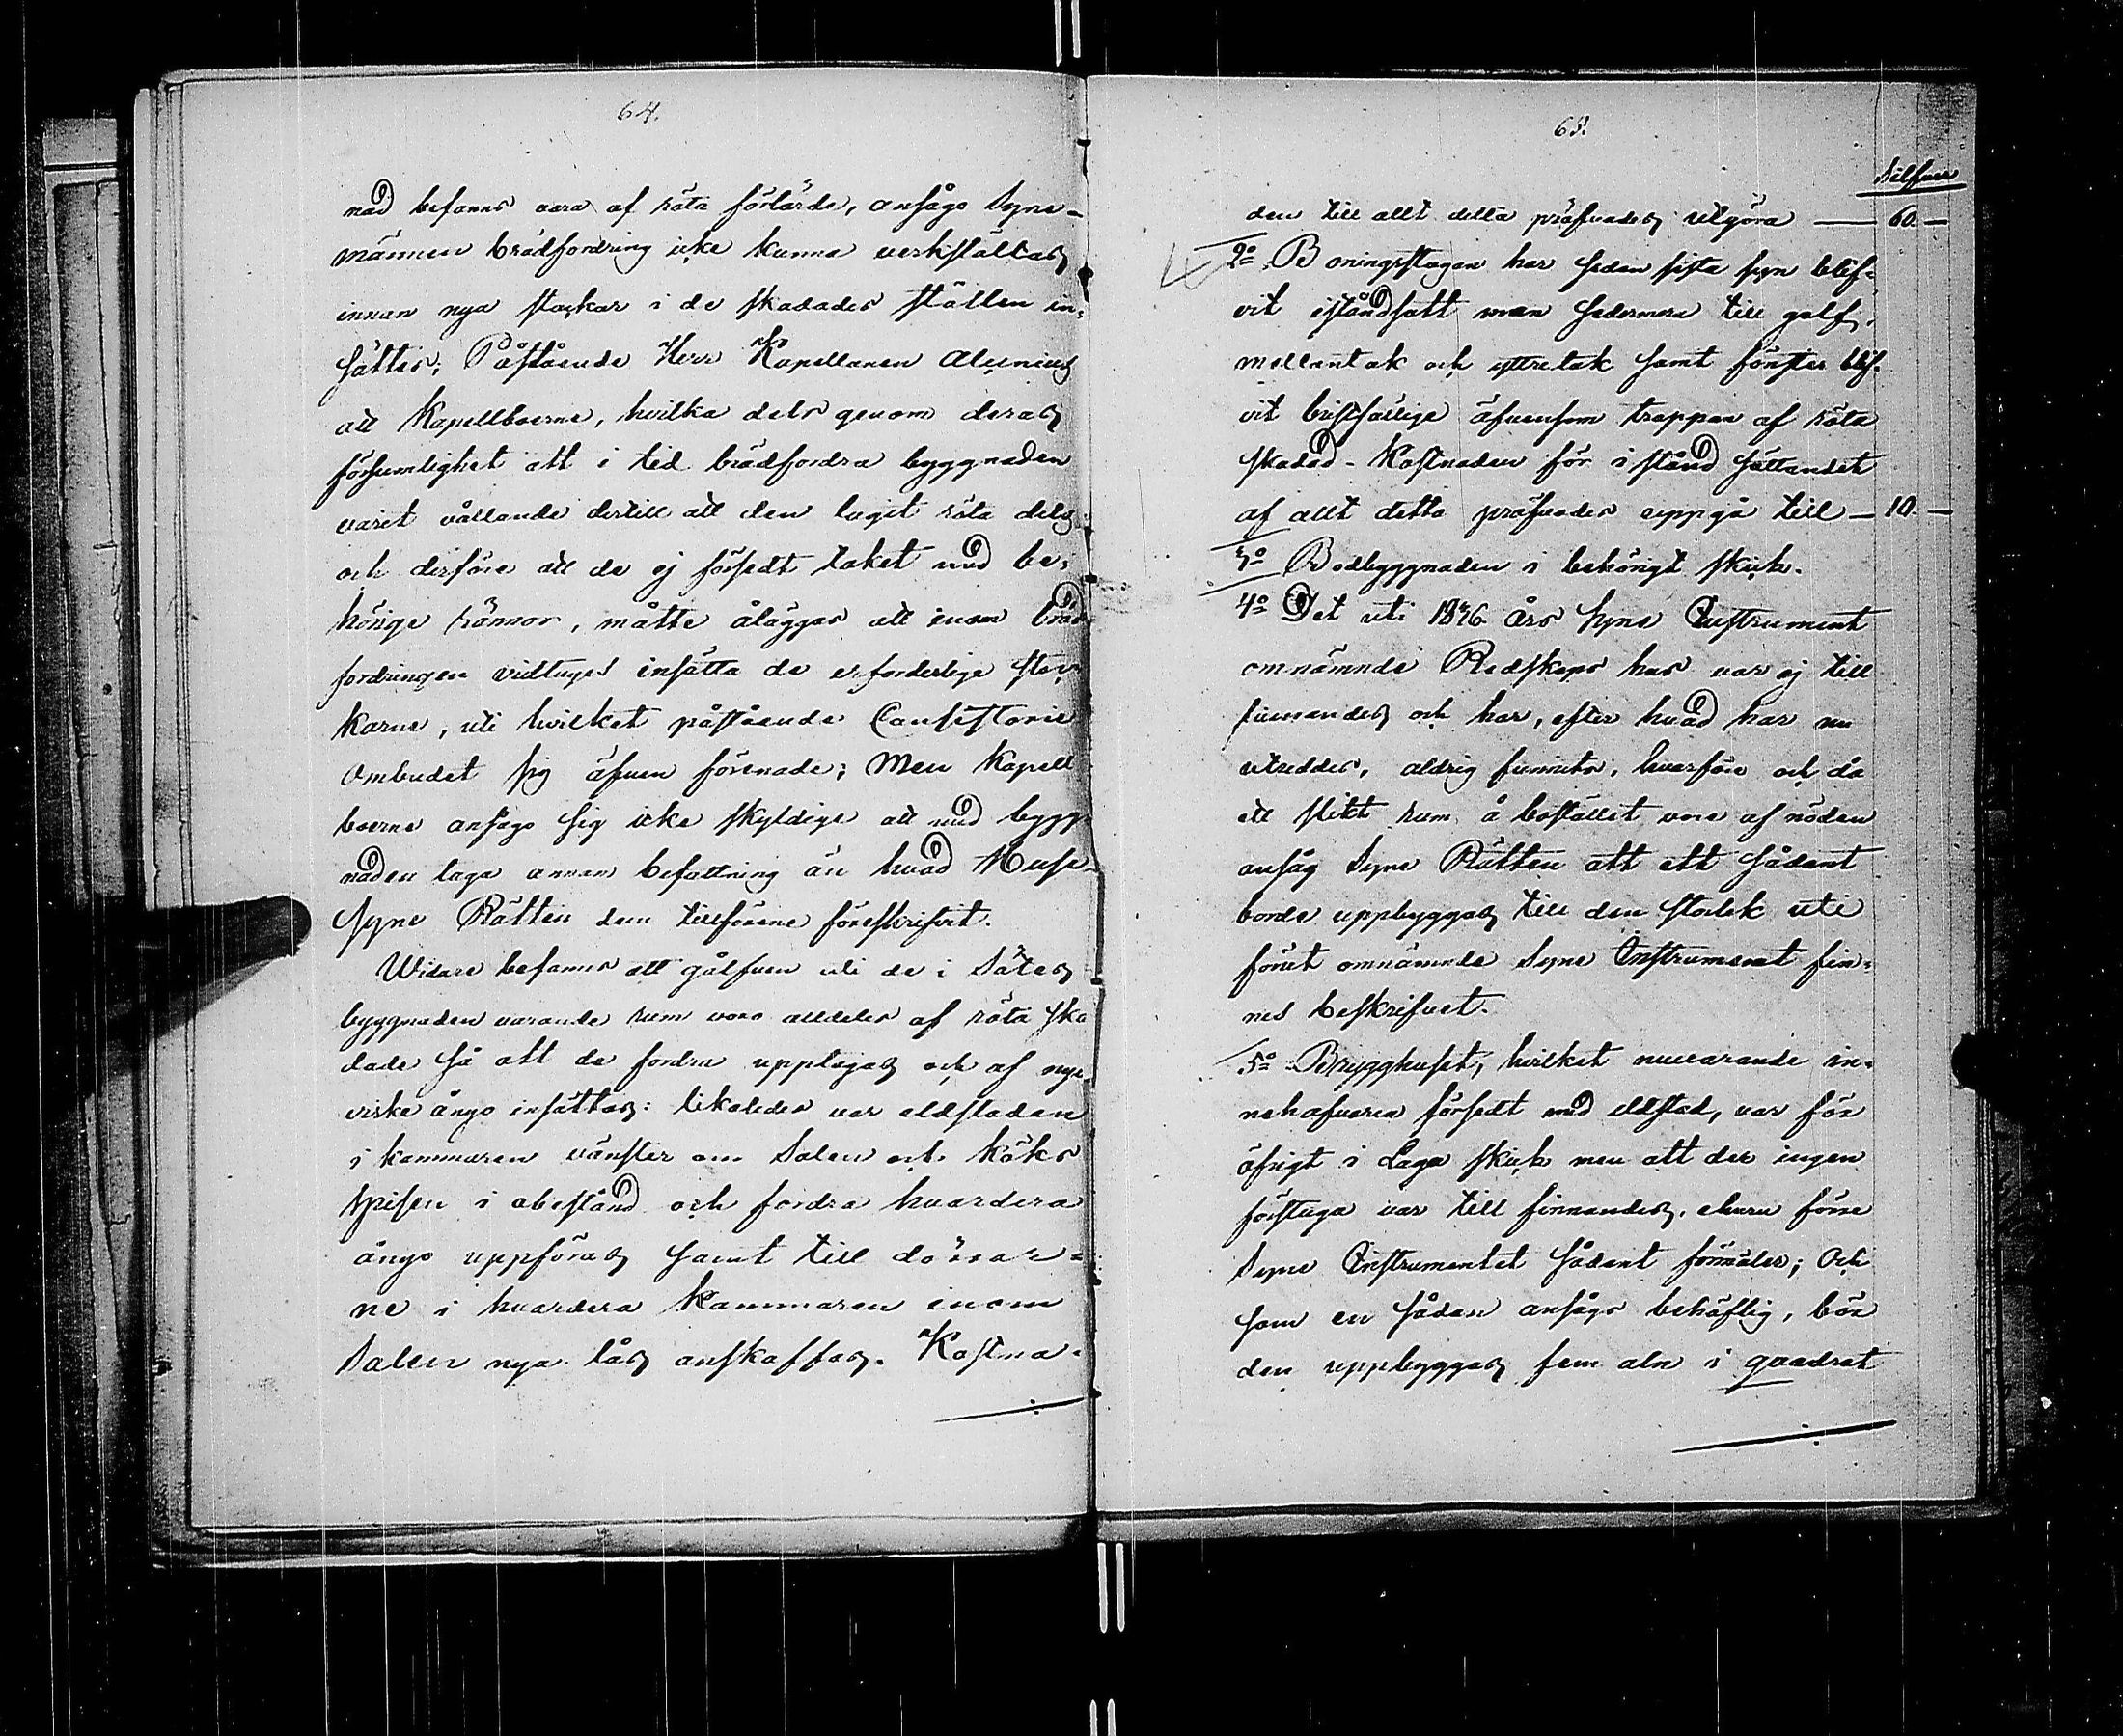 64.
nad befanns vara af röta förtärde, ansågo Syne-
männen brädfordring icke kunna verkställas
innan nya stockar i de skadades ställen in-
sättes; Påstående Herr Kapellanen Alcenius
att Kapellboerne, hvilka dels genom deras
försumlighet att i tid brädfordra byggnaden
varit vållande dertill att den tagit röta dels
och derföre att de ej försedt taket med be-
hörige rännor, måtte åläggas att innan bräd
fordringen vidtages insätta de erforderlige stoc-
karne, uti hvilket påstående Consistorii
Ombudet sig äfven förenade; Men Kapell
boerne ansågo sig icke skyldige att med bygg-
naden taga annan befattning än hvad Huse-
syne Rätten dem tillförene föreskrifvit.
Widare befanns att gålfven uti de i Sätes
byggnaden varande rum voro alldeles af röta ska
dade så att de fordra upptagas och af nye
virke ånyo insättas: likaledes var eldstaden
i kammaren vänster om Salen och Köks
spisen i obestånd och fordra hvardera
ånyo uppföras samt till dörrar-
ne i hvardera Kammaren inom
Salen nya lås anskaffas. Kostna-
65.
Silfver
den till allt detta pröfvades utgöra — 60. —
2º Boningsstugan har sedan sista syn blif-
vit iståndsatt men sedermera till golf,
mellantak och yttretak samt fönster blif-
vit bristfällige äfvensom trappan af röta
skadad - Kostnaden för i stånd sättandet
af allt detta pröfvades uppgå till — 10. —
3º Bodbyggnaden i behörigt skick.
4º Det uti 1846 års Syne Instrument
omnämnde Redskaps hus var ej till
finnandes och har, efter hvad har nu
utreddes, aldrig funnits, hvarföre och då
ett slikt rum å bostället vore af nöden
ansåg Syne Rätten att ett sådant
borde uppbyggas till den storlek uti
förut omnämnde Syne Instrument fin-
nes beskrifvet.
5º Brygghuset, hvilket nuvarande in-
nehafvaren försedt med eldstad, var för
öfrigt i Laga skick men att der ingen
förstuga var till finnandes, ehuru förre
Syne Instrumentet sådant förmäler; Och
som en sådan ansågs behöflig, bör
den uppbyggas fem aln i quadrat